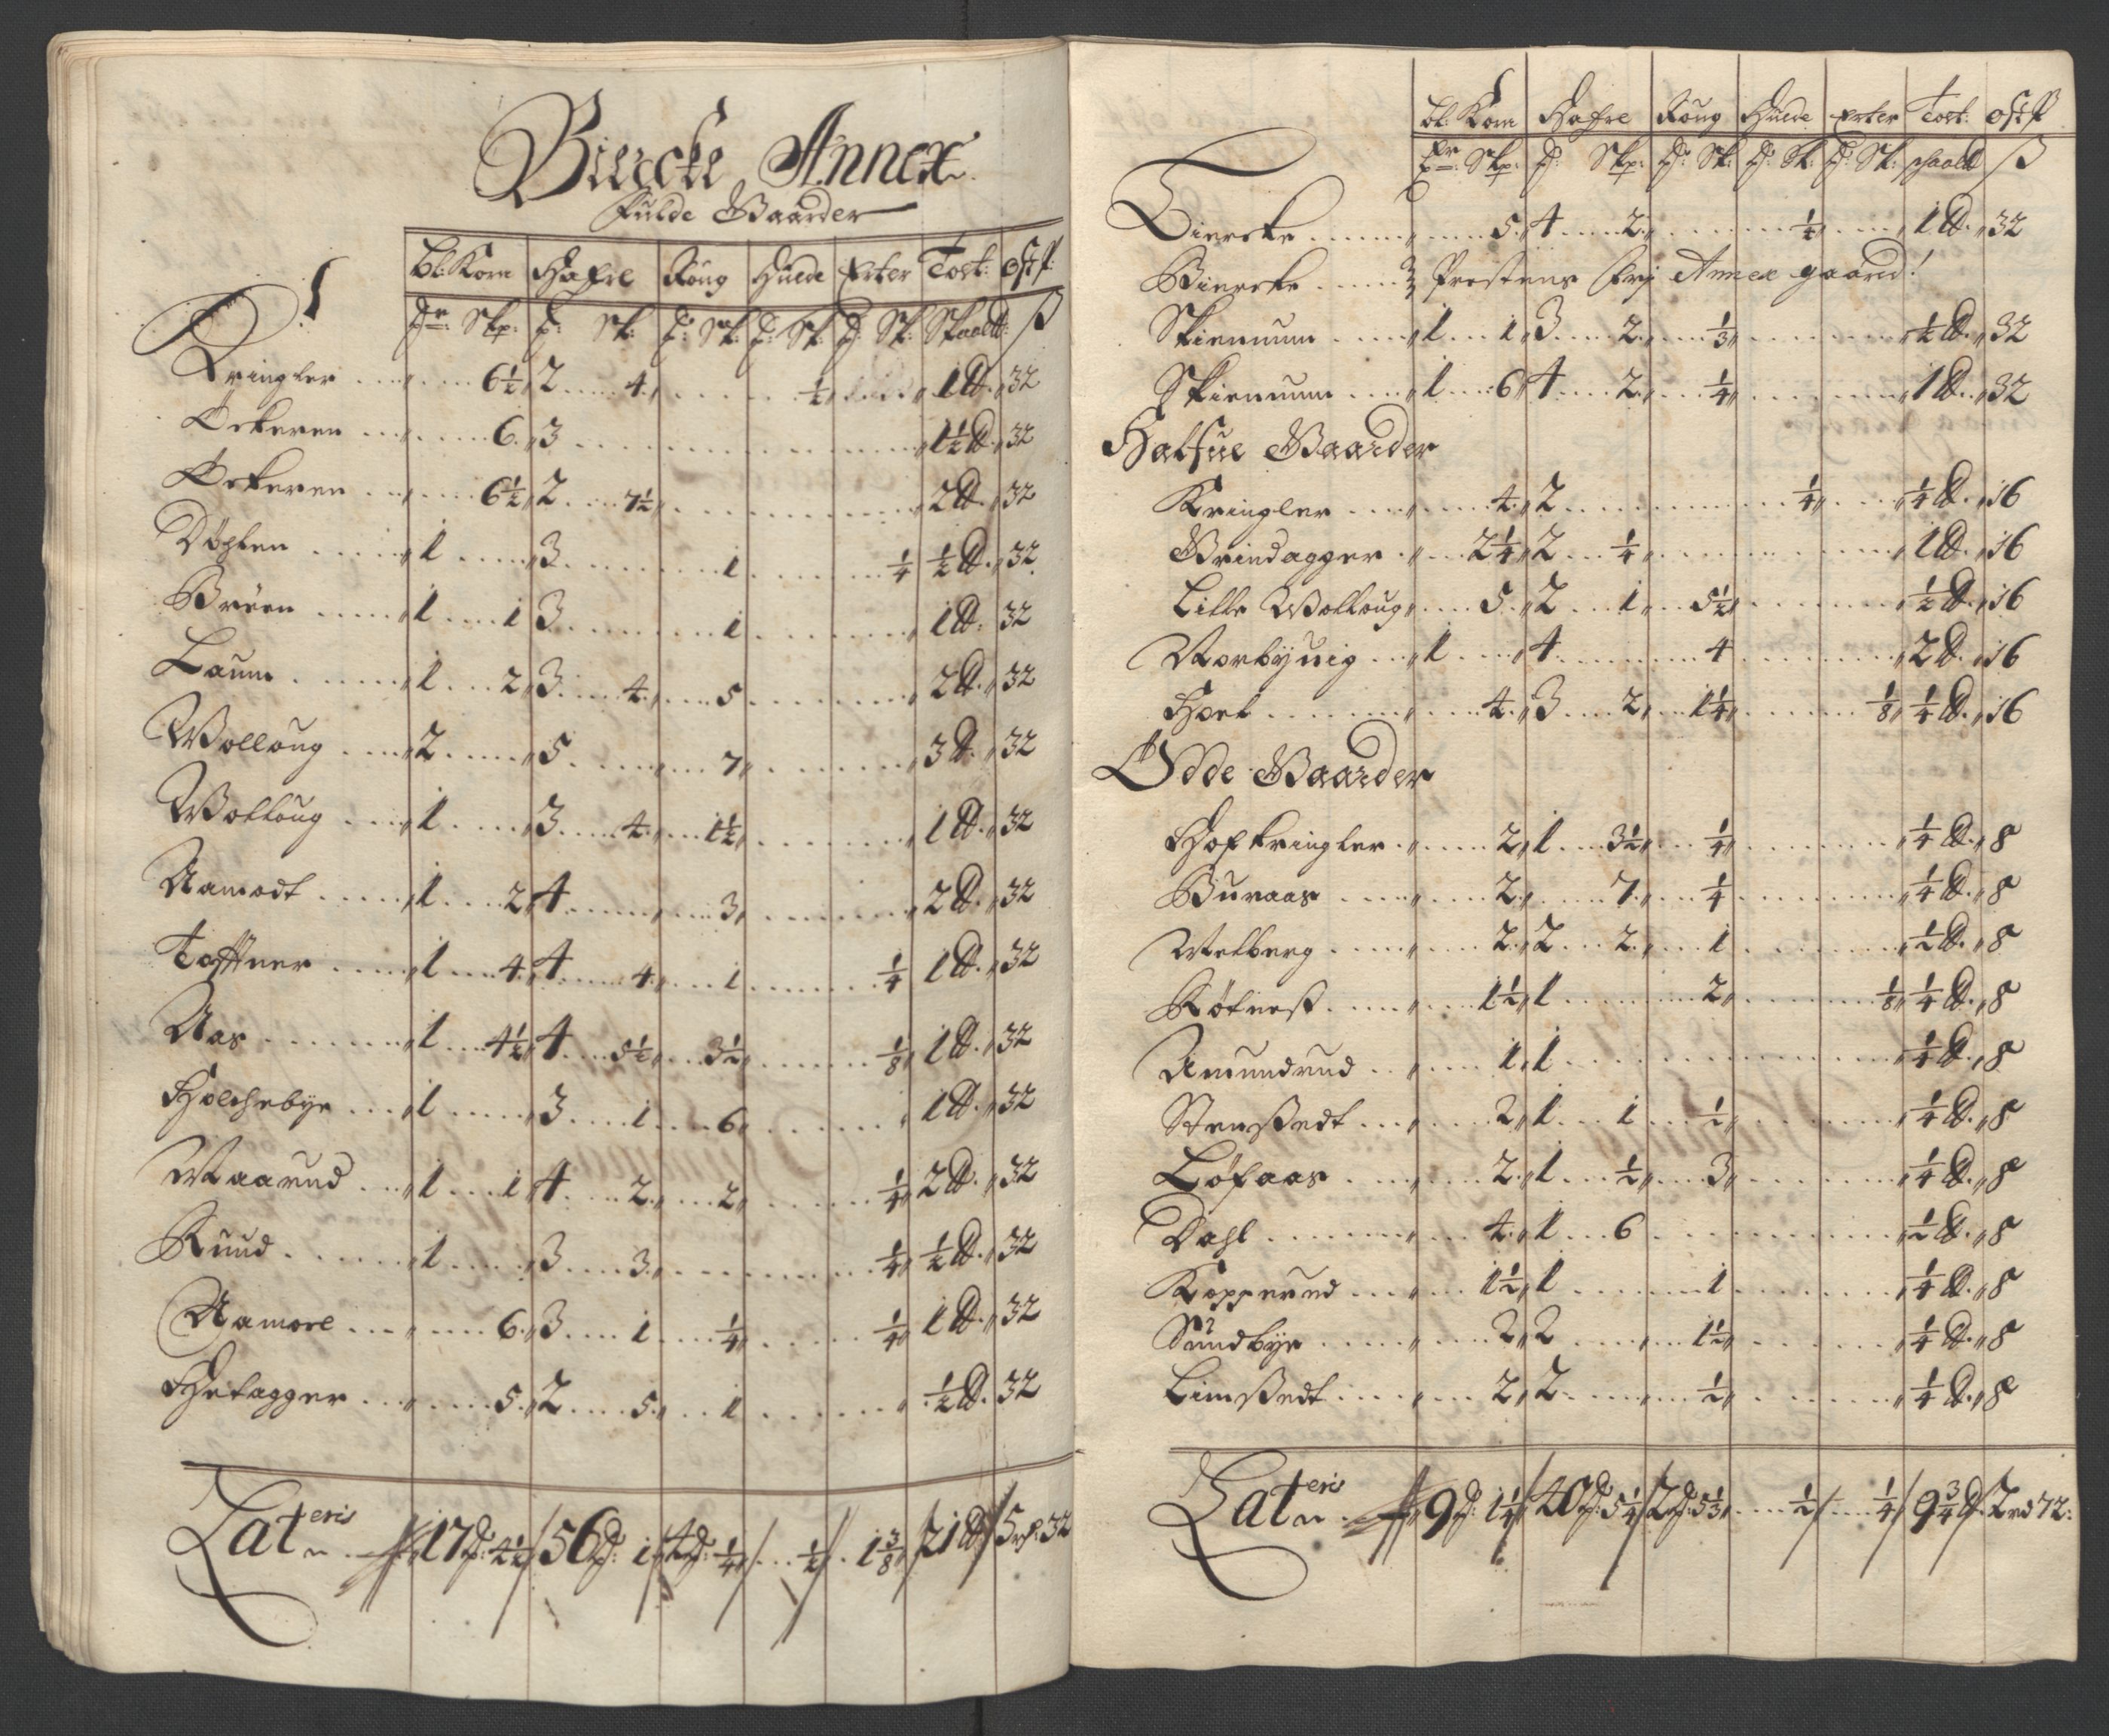 Biercke Annex
Fulde Gaarder
Bl: Korn Hafre Roug Huede Erter Tost: Ost ß
Tr: Skp: T: Sk: T: Sk: T: Sk: T: Sk: Skaald ß
Kringler 6½ 2 4 ½ 1 ℔ 32
Ørkeren 6 3 1½ ℔ 32
Ørkeren 6½ 2 7½ 2 ℔ 32
Døhlen 1 3 1 ¼ ½ ℔ 32
Bröen 1 1 3 1 1 ℔ 32
Laum 1 2 3 4 5 2 ℔ 32
Wolloug 2 5 7 3 ℔ 32
Wolloug 1 3 4 1½ 1 ℔ 32
Aamodt 1 2 4 3 2 ℔ 32
Toftner 1 4 4 4 1 ¼ 1 ℔ 32
Aas 1 4½ 4 5½ 3½ ⅛ 1 ℔ 32
Holchebye 1 3 1 6 1 ℔ 32
Waarud 1 1 4 2 2 ¼ 2 ℔ 32
Ruud 1 3 3 ¼ ½ ℔ 32
Aamoel 6 3 1 ¼ ¼ 1 ℔ 32
Helagger 5 2 5 1 ½ ℔ 32
Lateris 17 T: 4½ 56 T: 1 4 T: ¼ ½ 1⅜ 21 ℔ 5 rd: 32
Bl: Korn Hafre Roug Huede Erter Tost: Ost ß
Tr Skp: T: Skp: T: Sk: T: Sk: T: Sk: skaald ß
Biercke 5 4 2 ½ 1 ℔ 32
Biercke Prestens frj Annex gaard!
Skiennum 1 1 3 2 ⅓ ½ ℔ 32
Skiennum 1 6 4 2 ¼ 1 ℔ 32
Halfue Gaarder
Kringler 4 2 ¼ ¼ ℔ 16
Grindagger 2¼ 2 ¼ 1 ℔ 16
Lille Wolloug 5 2 1 5½ ½ ℔ 16
Norbyuig 1 4 4 2 ℔ 16
Hoel 4 3 2 1¼ ⅛ ¼ ℔ 16
Ödde Gaarder
Hofkringler 2 1 3½ ¼ ¼ ℔ 8
Buraas 2 7 ¼ ¼ ℔ 8
Melberg 2 2 2 1 ½ ℔ 8
Rötnest 1½ 1 2 ⅛ ¼ ℔ 8
Amundrud 1 1 ¼ ℔ 8
Stenstedt 2 1 1 ½ ¼ ℔ 8
Löfaas 2 1 ½ 3 ¼ ℔ 8
Dahl 4 1 6 ½ ℔ 8
Kopperud 1½ 1 1 ¼ ℔ 8
Sundbye 2 2 1½ ¼ ℔ 8
Limstedt 2 2 ½ ¼ ℔ 8
Lateris 9 T: 1¼ 40 T: 5¼ 2 T: 5⅓ ½ ¼ 9¾ ℔ 2 rd 72: